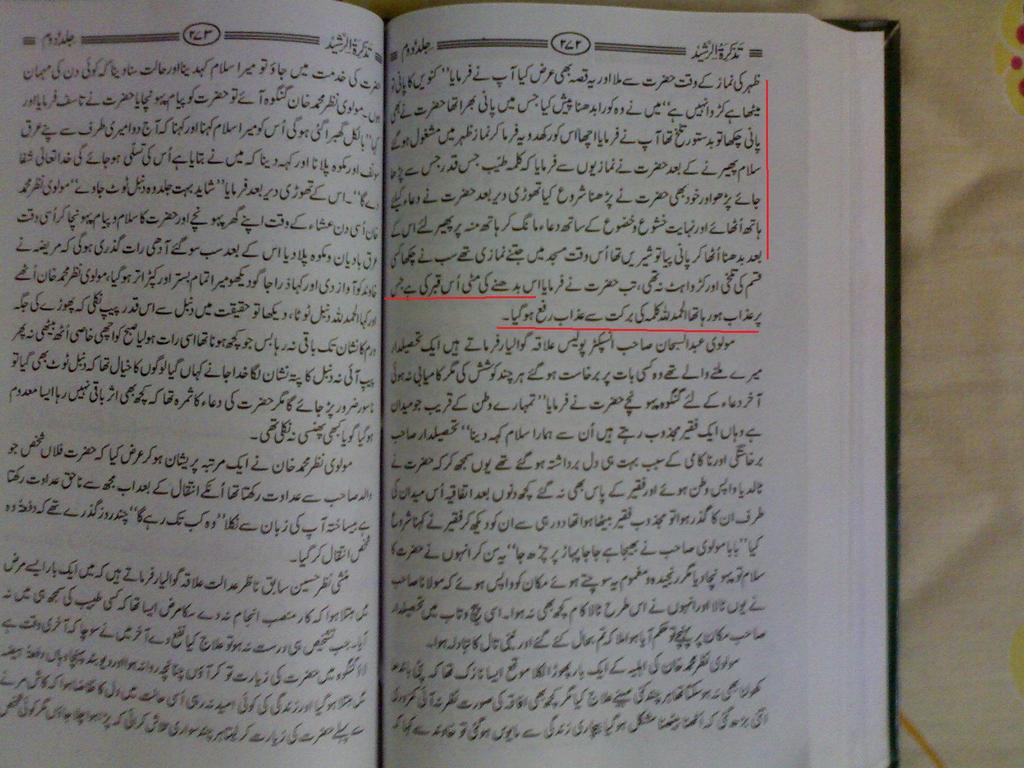 تذکرۃ الرشید ۲۷۲ جلد دوم
ظہر کی نماز کے وقت حضرت سے ملا اور یہ قصہ بھی عرض کیا آپ نے فرمایا "کنویں کا پانی تو
میٹھا ہے کڑوا نہیں ہے" میں نے وہ کورا بدھنا پیش کیا جس میں پانی بھرا تھا حضرت نے بھی
پانی چکھا تو بدستور تلخ تھا آپ نے فرمایا اچھا اس کو رکھدو یہ فرما کر نماز ظہر میں مشغول ہوگئے
سلام پھیرنے کے بعد حضرت نے نمازیوں سے فرمایا کہ کلمہ طیب جس قدر جس سے پڑھا
جائے پڑھو اور خود بھی حضرت نے پڑھنا شروع کیا تھوڑی دیر بعد حضرت نے دعاء کیلئے
ہاتھ اُٹھائے اور نہایت خشوع وخضوع کے ساتھ دعاء مانگ کر ہاتھ منہ پر پھیر لئے اس کے
بعد بدھنا اُٹھا کر پانی پیا تو شیریں تھا اُس وقت مسجد میں جتنے نمازی تھے سب نے چکھا کسی
قسم کی تلخی اور کڑواہٹ نہ تھی، تب حضرت نے فرمایا اس بدھنے کی مٹی اُس قبر کی ہے جس
پر عذاب ہو رہا تھا الحمد للہ کلمہ کی برکت سے عذاب رفع ہوگیا۔
مولوی عبدالسبحان صاحب انسپکٹر پولیس علاقہ گوالیار فرماتے ہیں ایک تحصیلدار
میرے ملنے والے تھے وہ کسی بات پر برخاست ہوگئے ہر چند کوشش کی مگر کامیابی نہ ہوئی
آخر دعاء کے لئے گنگوہ پہونچے حضرت نے فرمایا "تمہارے وطن کے قریب جو میدان
ہے وہاں ایک فقیر مجذوب رہتے ہیں اُن سے ہمارا سلام کہہ دینا" تحصیلدار صاحب
برخاستگی اور ناکامی کے سبب بہت ہی دل برداشتہ ہوگئے تھے یوں سمجھ کر کہ حضرت نے
ٹالدیا واپس وطن ہوئے اور فقیر کے پاس بھی نہ گئے کچھ دنوں بعد اتفاقیہ اُس میدان کی
طرف ان کا گذر ہوا تو مجذوب فقیر بیٹھا ہوا تھا دور ہی سے ان کو دیکھ کر فقیر نے کہنا شروع
کیا "بابا مولوی صاحب نے بھیجا ہے جا جا پہاڑ پر چڑھ جا" یہ سن کر انہوں نے حضرت کا
سلام تو پہونچا دیا مگر رنجیدہ و مغموم یہ سوچتے ہوئے مکان کو واپس ہوئے کہ مولانا صاحب
نے یوں ٹالا اور انہوں نے اس طرح ٹالا کام کچھ بھی نہ ہوا۔ اسی پیچ وتاب میں تحصیلدار
صاحب مکان پر پہنچے تو حکم آیا ہوا ملا کہ تم بحال کئے گئے اور نینی تال کا تبادلہ ہوا۔
مولوی نظر محمد خان کی اہلیہ کے ایک بار پھوڑا نکلا موقع ایسا نازک تھا کہ پٹی باندھنا
کھولنا بھی نہ ہوسکتا تھا ہر چند کئی مہینے علاج کیا مگر کچھ بھی افاقہ کی صورت نظر نہ آئی
اتنی بڑھ گئی کہ اٹھنا بیٹھنا مشکل ہوگیا بیچاری زندگی سے مایوس ہوگئی تو خاوند سے کہا کہ
تذکرۃ الرشید ۲۷۳ جلد دوم
حضرت کی خدمت میں جاؤ تو میرا سلام کہدینا اور حالت سنا دینا کہ کوئی دن کی مہمان
ہوں۔ مولوی نظر محمد خان گنگوہ آئے تو حضرت کو پیام پہونچایا حضرت نے تاسف فرمایا اور
کہا "بالکل گھبرا گئی ہوگی اُس کو میرا سلام کہنا اور کہنا کہ آج دوا میری طرف سے پئے عرق
سونف اور مکوہ پلانا اور کہہ دینا کہ میں نے بتایا ہے اُس کی تسلی ہو جائے گی خدا تعالیٰ شفا
دے گا"۔ اس کے تھوڑی دیر بعد فرمایا "شاید بہت جلد وہ دنبل ٹوٹ جاوے" مولوی نظر محمد
خان اُسی دن عشاء کے وقت اپنے گھر پہونچے اور حضرت کا سلام و پیام پہونچا کر اُسی وقت
عرق بادیان ومکوہ پلادیا اس کے بعد سب سو گئے آدھی رات گذری ہوگی کہ مریضہ نے
خاوند کو آواز دی اور کہا ذرا جاگو دیکھو میرا تمام بستر اور کپڑا تر ہوگیا، مولوی نظر محمد خان اُٹھے
اور کہا الحمد للہ دنبل ٹوٹا، دیکھا تو حقیقت میں دنبل سے اس قدر پیپ نکلی کہ پھوڑے کی جگہ
ورم کا نشان تک باقی نہ رہا بس جو کچھ ہونا تھا اسی رات ہولیا صبح کو اچھی خاصی اُٹھ بیٹھی نہ پھر
پیپ آئی نہ دنبل کا پتہ نشان لگا خدا جانے کہاں گیا لوگوں کا خیال تھا کہ دنبل ٹوٹ بھی گیا تو
ناسور ضرور پڑ جائے گا مگر حضرت کی دعاء کا ثمرہ تھا کہ کچھ بھی اثر باقی نہیں رہا ایسا معدوم
ہوگیا گویا کبھی پھنسی نہ نکلی تھی۔
مولوی نظر محمد خان نے ایک مرتبہ پریشان ہو کر عرض کیا کہ حضرت فلاں شخص جو
والد صاحب سے عداوت رکھتا تھا اُنکے انتقال کے بعد اب مجھ سے ناحق عداوت رکھتا
ہے بیساختہ آپ کی زبان سے نکلا "وہ کب تک رہے گا" چند روز گذرے تھے کہ دفعۃً وہ
شخص انتقال کر گیا۔
منشی نظر حسین سابق ناظر عدالت علاقہ گوالیار فرماتے ہیں کہ میں ایک بار ایسے مرض
میں مبتلا ہوا کہ کار منصب انجام نہ دے سکا مرض ایسا تھا کہ کسی طبیب کی سمجھ ہی میں نہ
آیا۔ جب تشخیص ہی درست نہ ہو تو علاج کیا نفع دے آخر میں نے سوچا کہ آخری وقت ہے
لاؤ گنگوہ میں حضرت کی زیارت تو کر آؤں چنانچہ روانہ ہوا اور دیوبند پہنچا وہاں دفعۃً ہیضہ
میں مبتلا ہوگیا اور زندگی کی کوئی امید نہ رہی اُسی حالت میں دل کا تقاضا ہوا کہ کاش مرنے
سے پہلے حضرت کی زیارت کر لیتا ہر چند سواری تلاش کرائی کہ پڑا ہوا چلا جاؤں مگر کوئی شخص